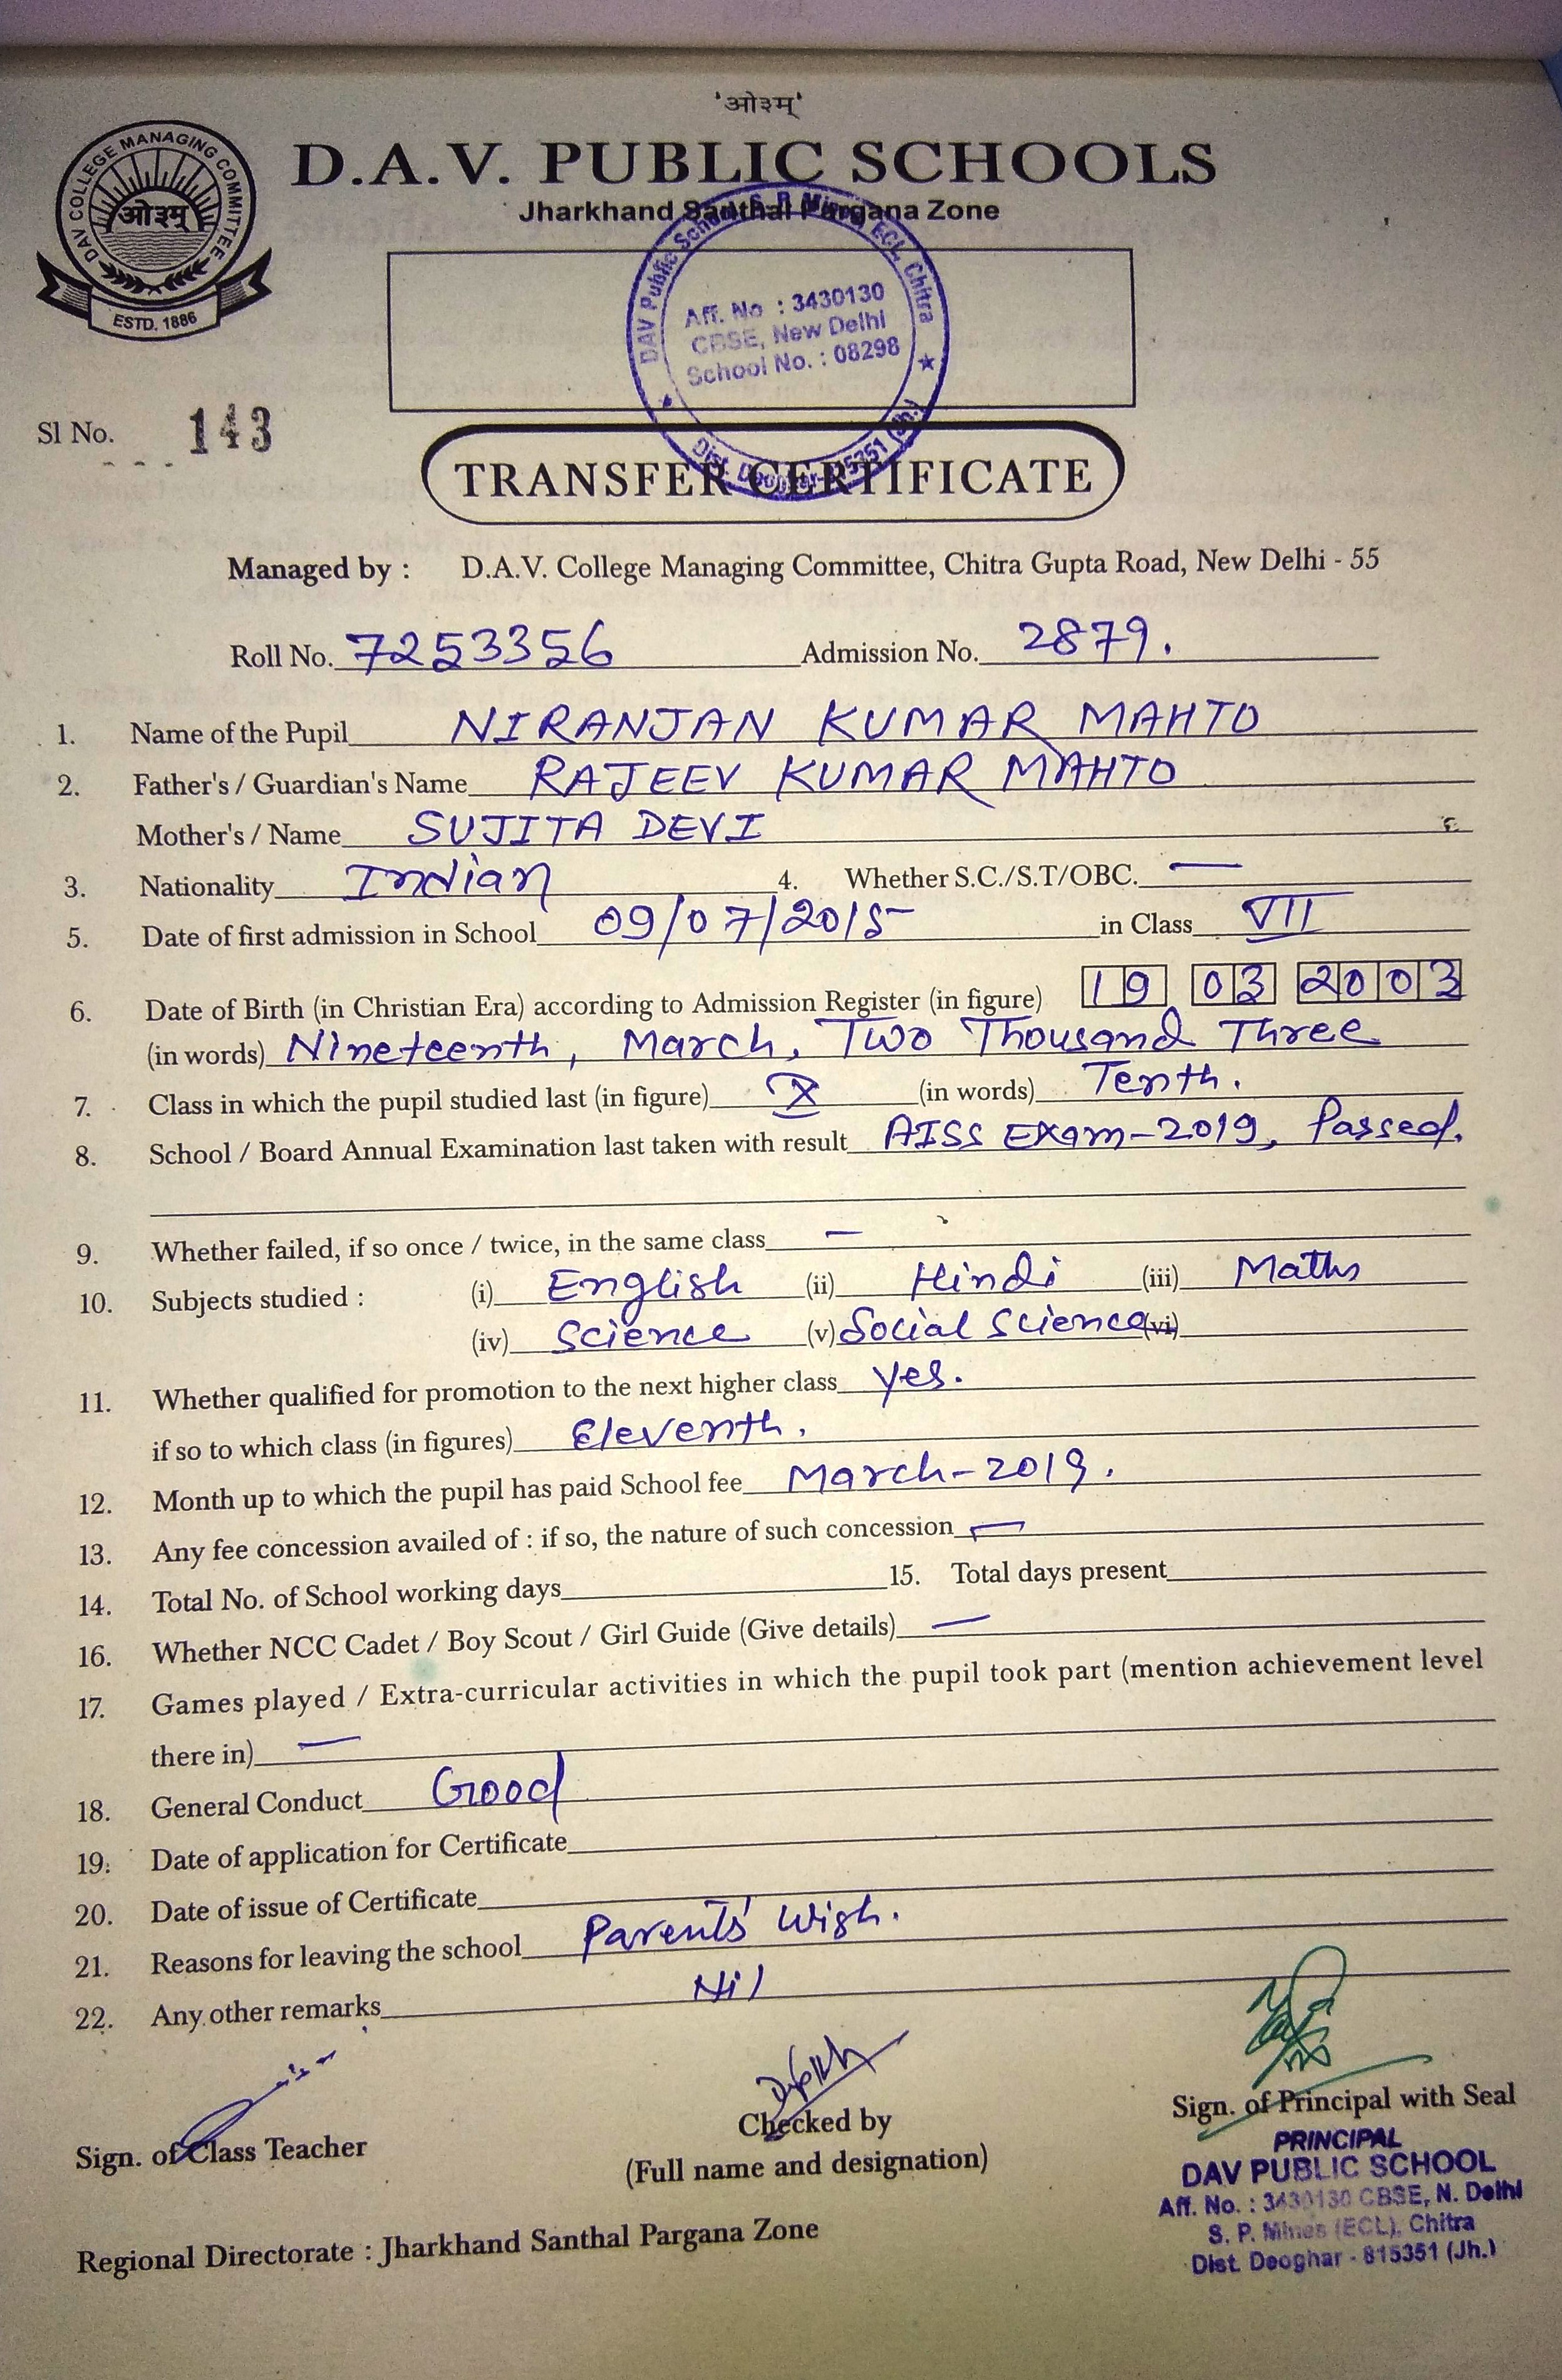 'ओ३म्'
D.A.V. PUBLIC SCHOOLS
Jharkhand Santhal Pargana Zone
DAV COLLEGE MANAGING COMMITTEE
ओ३म्
ESTD. 1886
DAV Public School, S. P. Mines, ECL, Chitra
Aff. No : 3430130
CBSE, New Delhi
School No. : 08298
Dist. Deoghar-815351 (Jh.)
Sl No. 143
TRANSFER CERTIFICATE
Managed by : D.A.V. College Managing Committee, Chitra Gupta Road, New Delhi - 55
Roll No. 7253356 Admission No. 2879.
1. Name of the Pupil NIRANJAN KUMAR MAHTO
2. Father's / Guardian's Name RAJEEV KUMAR MAHTO
Mother's / Name SUJITA DEVI
3. Nationality Indian 4. Whether S.C./S.T/OBC. —
5. Date of first admission in School 09/07/2015 in Class VII
6. Date of Birth (in Christian Era) according to Admission Register (in figure) 19 03 2003
(in words) Nineteenth, March, Two Thousand Three
7. Class in which the pupil studied last (in figure) X (in words) Tenth.
8. School / Board Annual Examination last taken with result AISS Exam-2019, Passed.
9. Whether failed, if so once / twice, in the same class —
10. Subjects studied : (i) English (ii) Hindi (iii) Maths
(iv) Science (v) Social Science (vi)
11. Whether qualified for promotion to the next higher class Yes.
if so to which class (in figures) Eleventh.
12. Month up to which the pupil has paid School fee March-2019.
13. Any fee concession availed of : if so, the nature of such concession —
14. Total No. of School working days 15. Total days present
16. Whether NCC Cadet / Boy Scout / Girl Guide (Give details) —
17. Games played / Extra-curricular activities in which the pupil took part (mention achievement level
there in) —
18. General Conduct Good
19. Date of application for Certificate
20. Date of issue of Certificate
21. Reasons for leaving the school Parents' Wish.
22. Any other remarks Nil
Sign. of Class Teacher
Checked by
(Full name and designation)
Sign. of Principal with Seal
PRINCIPAL
DAV PUBLIC SCHOOL
Aff. No. : 3430130 CBSE, N. Delhi
S. P. Mines (ECL), Chitra
Dist. Deoghar - 815351 (Jh.)
Regional Directorate : Jharkhand Santhal Pargana Zone